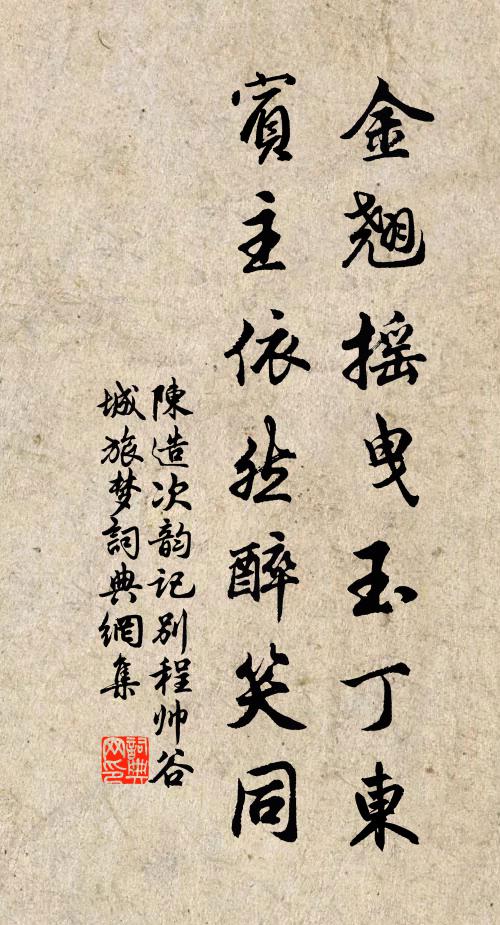 金翘摇曳玉丁東
賓主依然醉笑同
陳造次韵记别程帅谷
城旅梦詞典網集
詞典
网印